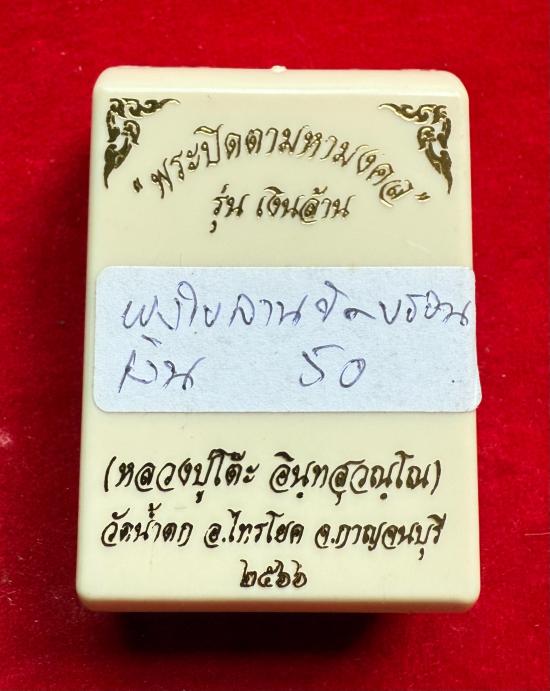 "พระปิดตามหามงคล"
รุ่น เงินล้าน
ผงใบลาน
เงิน 50
(หลวงปู่โต๊ะ อินฺทสุวณฺโณ)
วัดน้ำตก อ.ไทรโยค จ.กาญจนบุรี
๒๕๖๖